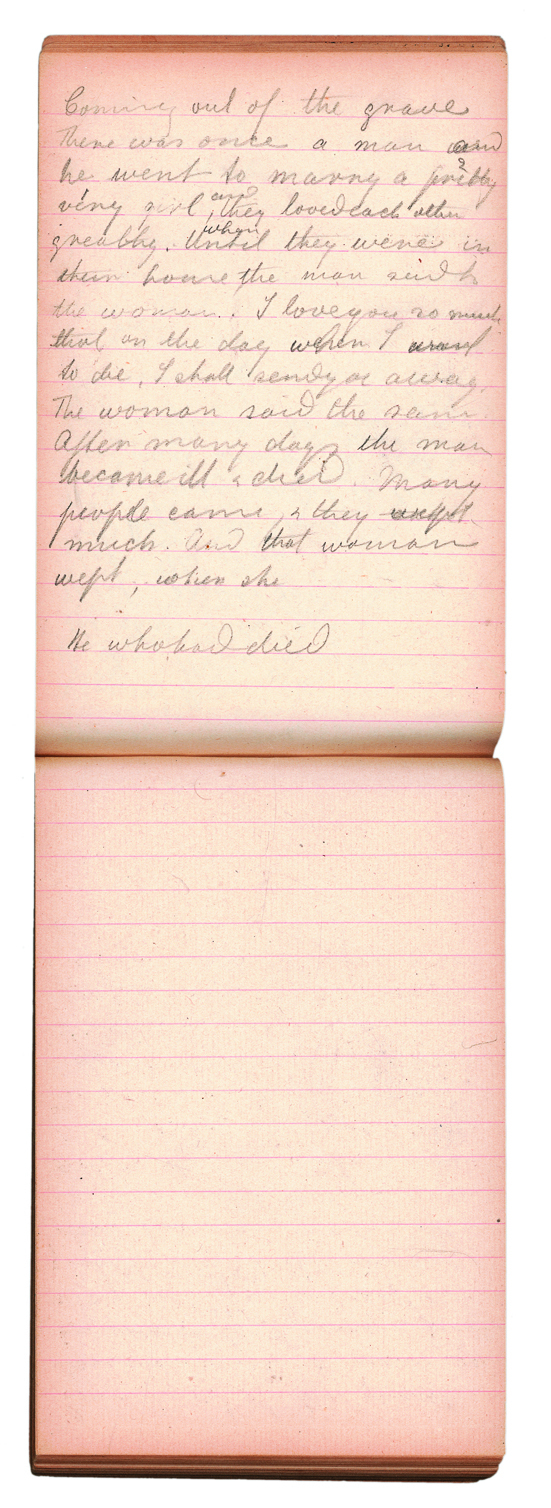 Coming out of the grave
There was once a man and
he went to marry a pretty
very girl, and they loved each other
greatly. Until when they were in
their home the man said to
the woman. I love you so much
that on the day when I
to die, I shall send you away.
The woman said the same.
After many days the man
became ill & died. Many
people came, & they wept
much. And that woman
wept, when she
He who had died